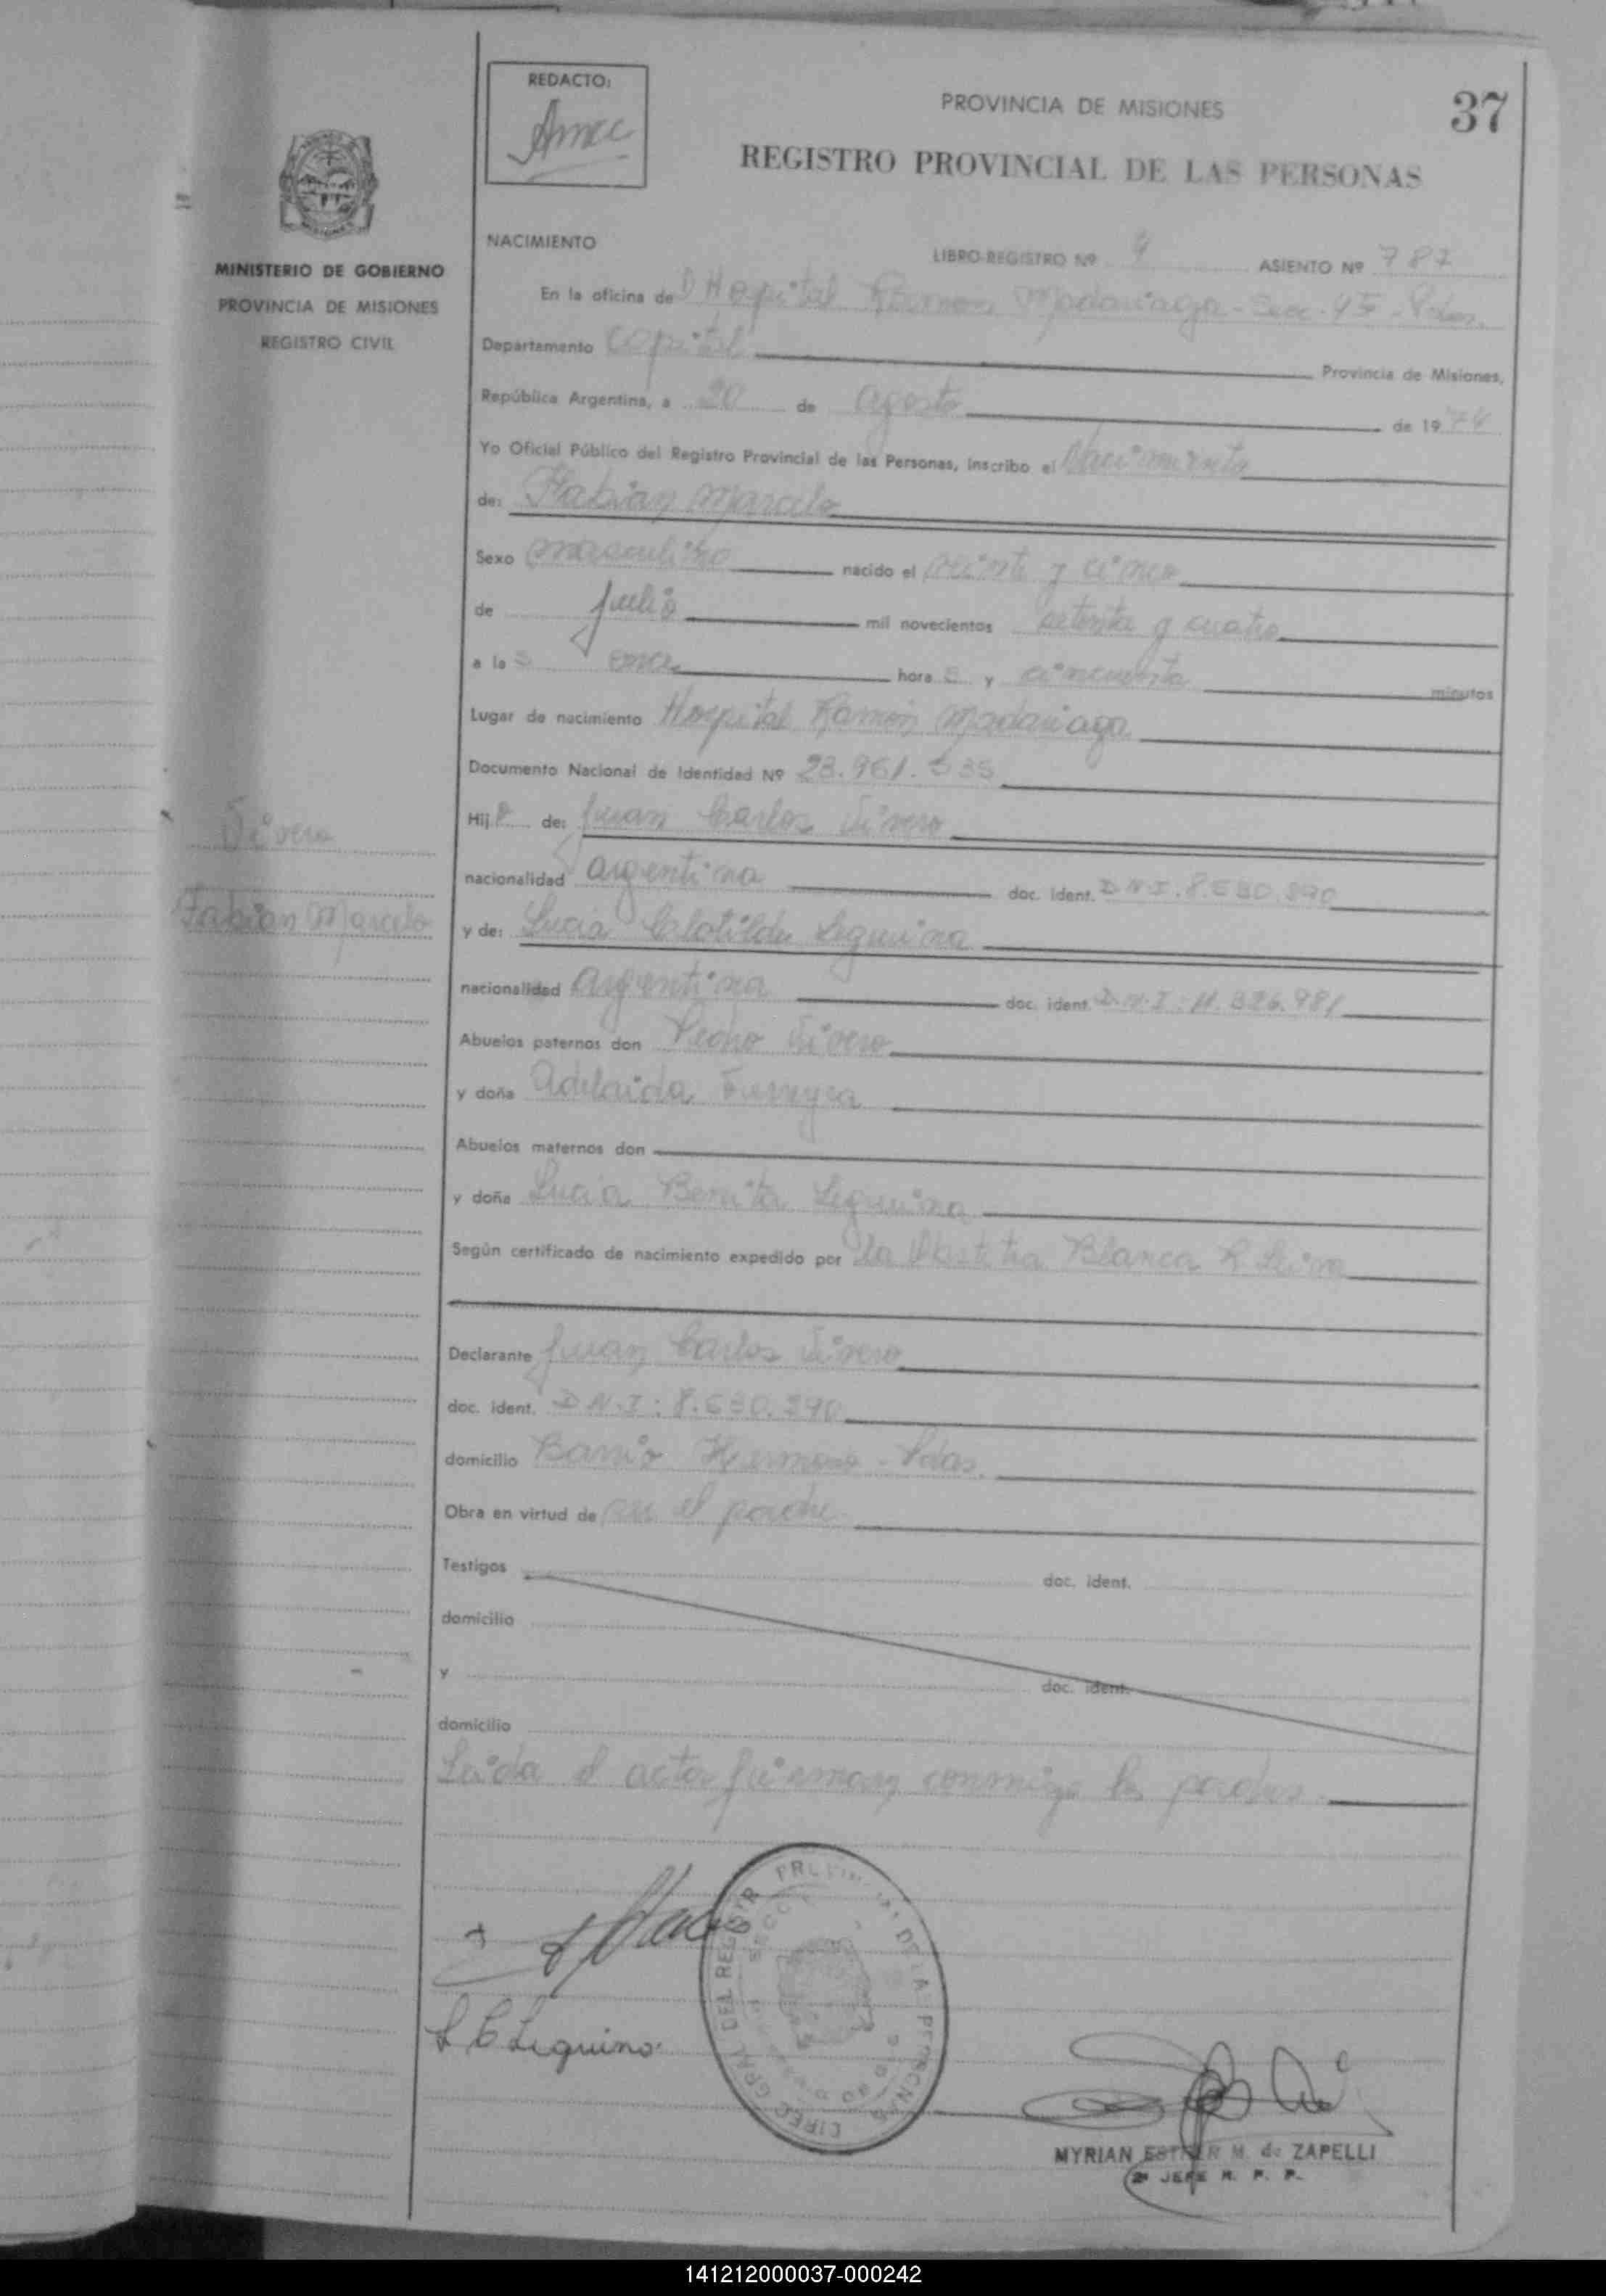 37
REDACTO:
PROVINCIA DE MISIONES
REGISTRO PROVINCIAL DE LAS PERSONAS
MINISTERIO DE GOBIERNO
PROVINCIA DE MISIONES
REGISTRO CIVIL
NACIMIENTO LIBRO-REGISTRO Nº 4 ASIENTO Nº 787
En la oficina de Hospital Ramon Madariaga - Secc.
Departamento Capital Provincia de Misiones,
República Argentina, a 20 de agosto de 1974
Yo Oficial Público del Registro Provincial de las Personas, inscribo el nacimiento
de: Fabian Marcelo
Sexo masculino nacido el veinte y cinco
de julio mil novecientos setenta y cuatro
a las once horas y cincuenta minutos
Lugar de nacimiento Hospital Ramon Madariaga
Documento Nacional de Identidad Nº 23.961.535
Hijo de: Juan Carlos Vivero
nacionalidad argentina doc. ident. D.N.I. 8.530.390
Vivero
Fabian Marcelo
y de: Lucia Clotilde Leguina
nacionalidad argentina doc. ident. D.N.I. 11.326.981
Abuelos paternos don Pedro Vivero
y doña Adelaida Ferreyra
Abuelos maternos don
y doña Lucia Benita Leguina
Según certificado de nacimiento expedido por la Obstetra Blanca
Declarante Juan Carlos Vivero
doc. ident. D.N.I: 8.530.390
domicilio Barrio Hermoso - Pdas.
Obra en virtud de ser el padre
Testigos doc. ident.
domicilio
y doc. ident.
domicilio
Leida el acta firman conmigo los padres
L C Leguina
MYRIAN ESTHER M. de ZAPELLI
2º JEFE R. P. P.
141212000037-000242